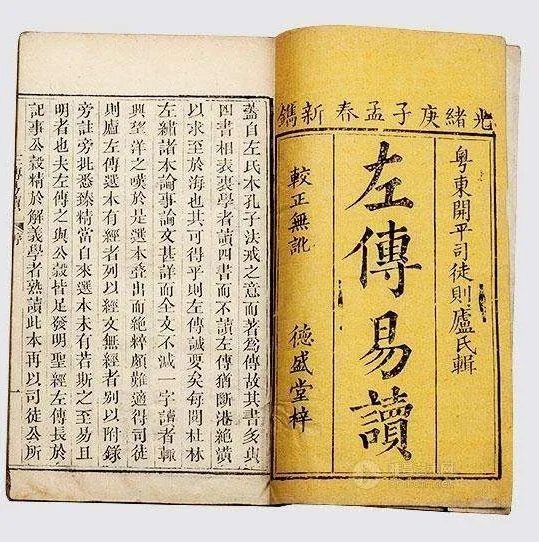 光緒庚子孟春新鐫
粵東開平司徒則廬氏輯
左傳易讀
較正無訛 德盛堂梓
蓋自左氏本孔子法戒之意而著為傳故其書多與
四書相表裏學者讀四書而不讀左傳猶斷港絶潢
以求至於海也其可得乎則左傳誠要矣每閱杜林
左繡諸本論事論文甚詳而全文不減一字讀者輒
興望洋之嘆於是選本疊出而絶粹頗難適得司徒
則廬左傳選本有經者列以經文無經者別以附錄
旁註旁批悉臻精當自來選本未有若斯之至易且
明者也夫左傳之與公穀皆足發明聖經左傳長於
記事公穀精於解義學者熟讀此本再以司徒公所